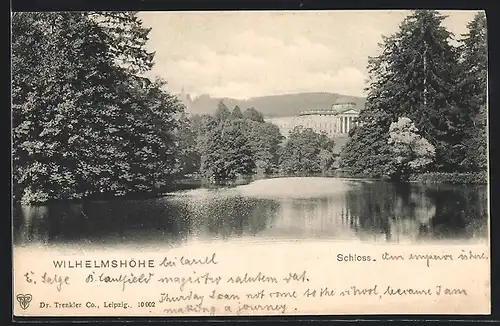 WILHELMSHÖHE bei Cassel Schloss. - Am emperor is here.
B. Caulfield magistro salutem dat.
Thursday I can not come to the school, because I am
making a journey.
Dr. Trenkler Co., Leipzig. 10 002